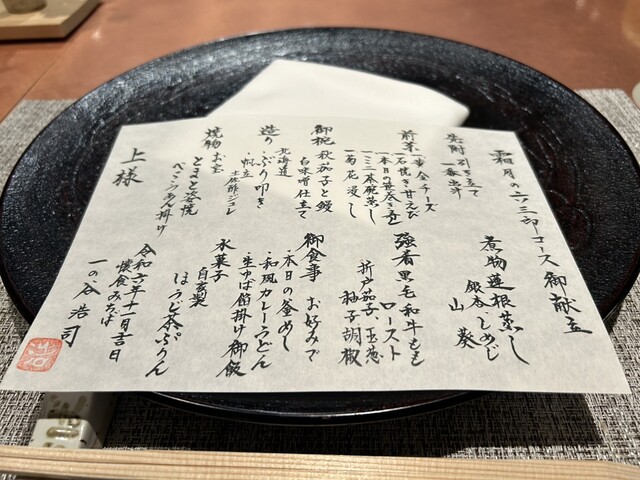 霜月の六三郎コース御献立
先附 引き立て
一番出汁
前菜 一車金チーズ
一石焼き甘えび
一本日の笹巻き寿し
一三三本碗蒸し
一菊花浸し
御椀 秋茄子と鰻
白味噌仕立て
造り ・ぶり叩き
北海道
・帆立
土佐酢ジュレ
焼物 お宝
とまと姿焼
べっこうあん掛け
煮物 蓮根蒸し
銀杏、しめじ
山葵
強肴 黒毛和牛もも
ロースト
折戸茄子 玉葱
柚子胡椒
御食事 お好みで
・本日の釜めし
・和風カレーうどん
・生ゆば餡掛け御飯
水菓子
自家製
ほうじ茶ぷりん
令和六年十一月吉日
懐食みちば
一の谷 浩司
上様